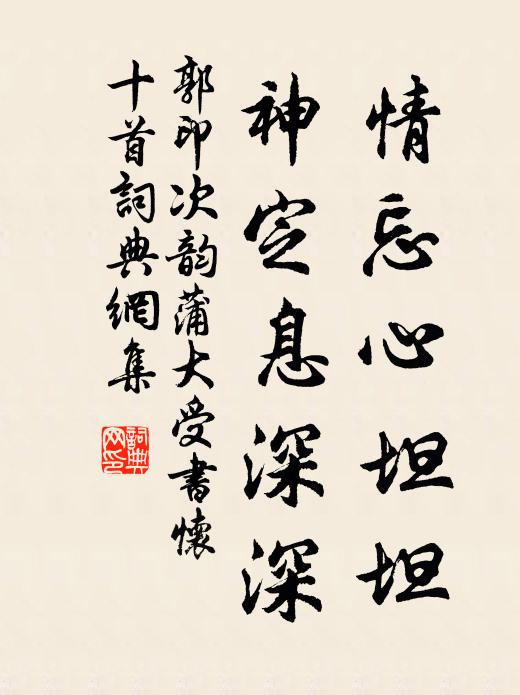 情忘心坦坦
神定息深深
郭印次韵蒲大受書懷
十首詞典網集
詞典网印